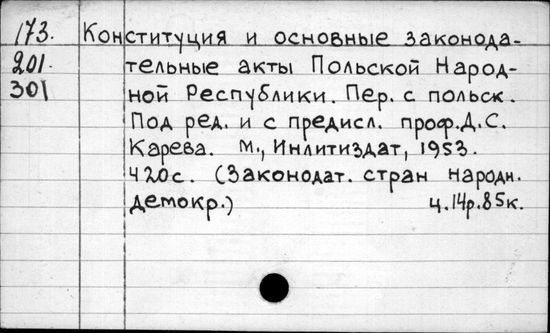 173. Конституция и основные законода-
201. тельные акты Польской Народ-
301 ной Республики. Пер. с польск.
Под ред. и с предисл. проф. Д. С.
Карева. М., Инлитиздат, 1953.
420с. (Законодат. стран народн.
демокр.) ц. 14р. 85к.